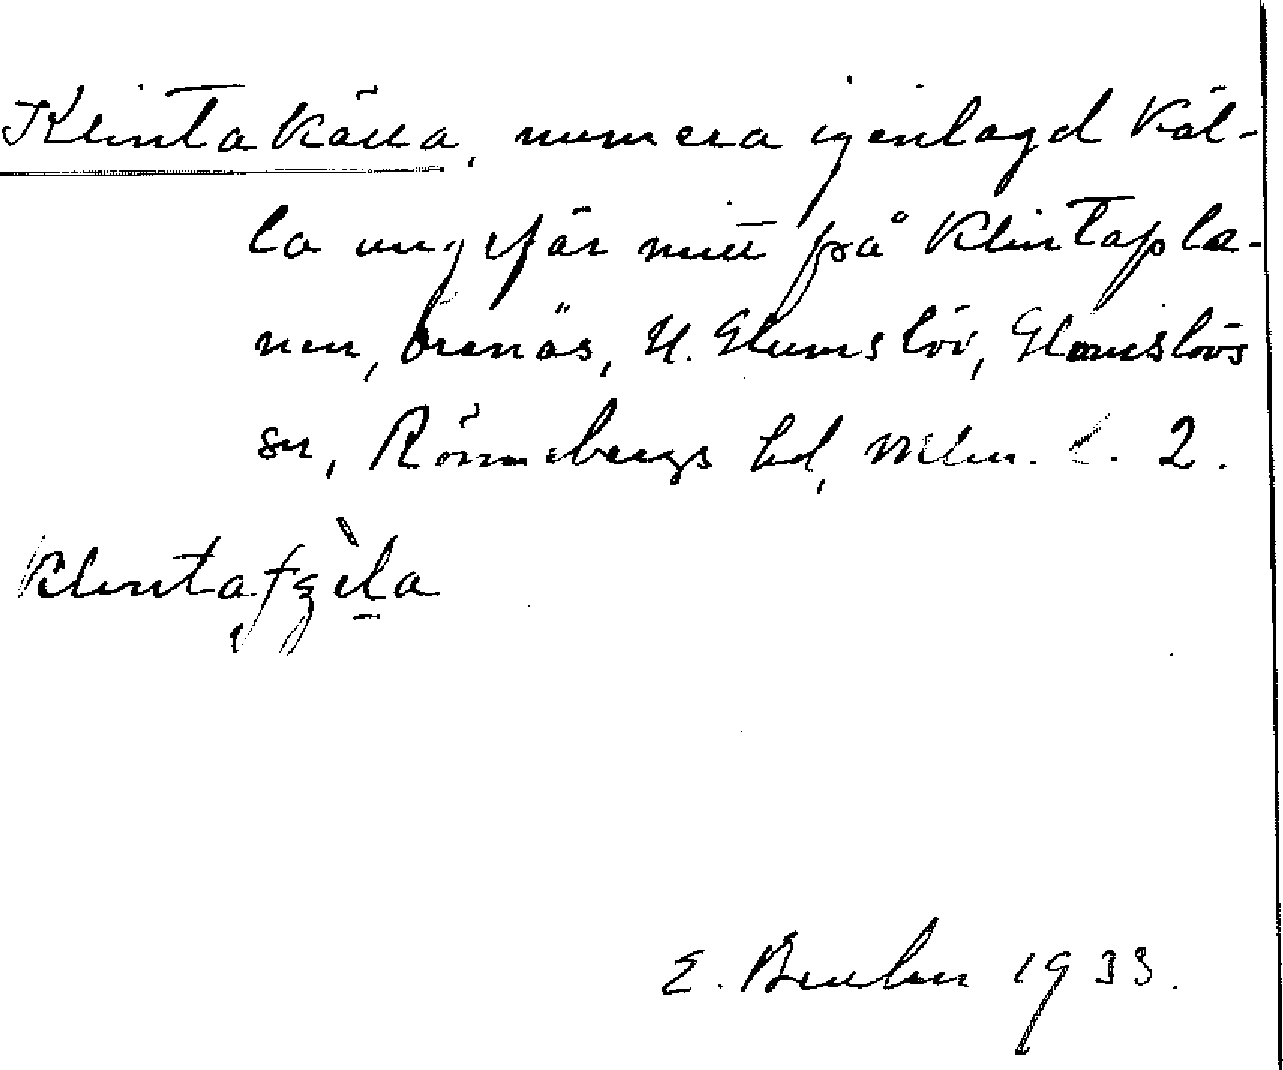 Klinta källa, numera igenlagd käl-
la ungefär mitt på Klintapla-
nen, Örenäs, N. Glumslöv, Glumslövs
sn, Rönnebergs hd, Mlm. l. 2.
Klintaʃɛ̀la
E. 1933.